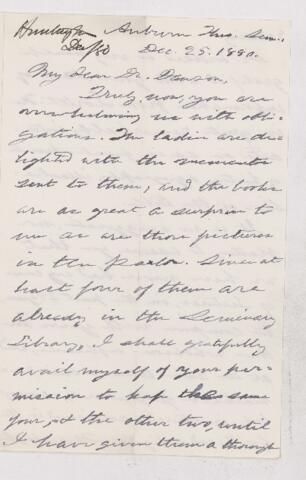 Huntington
Dec/80
Auburn Theo. Sem.,
Dec. 25. 1880.
My Dear Dr. Dawson,
Truly, now, you are
overwhelming us with obli-
gations. The ladies are de-
lighted with the mementos
sent to them; and the books
are as great a surprise to
me as are those pictures
in the Parlor. Since at
least four of them are
already in the Seminary
Library, I shall gratefully
avail myself of your per-
mission to keep these same
four, & the other two, until
I have given them a thorough